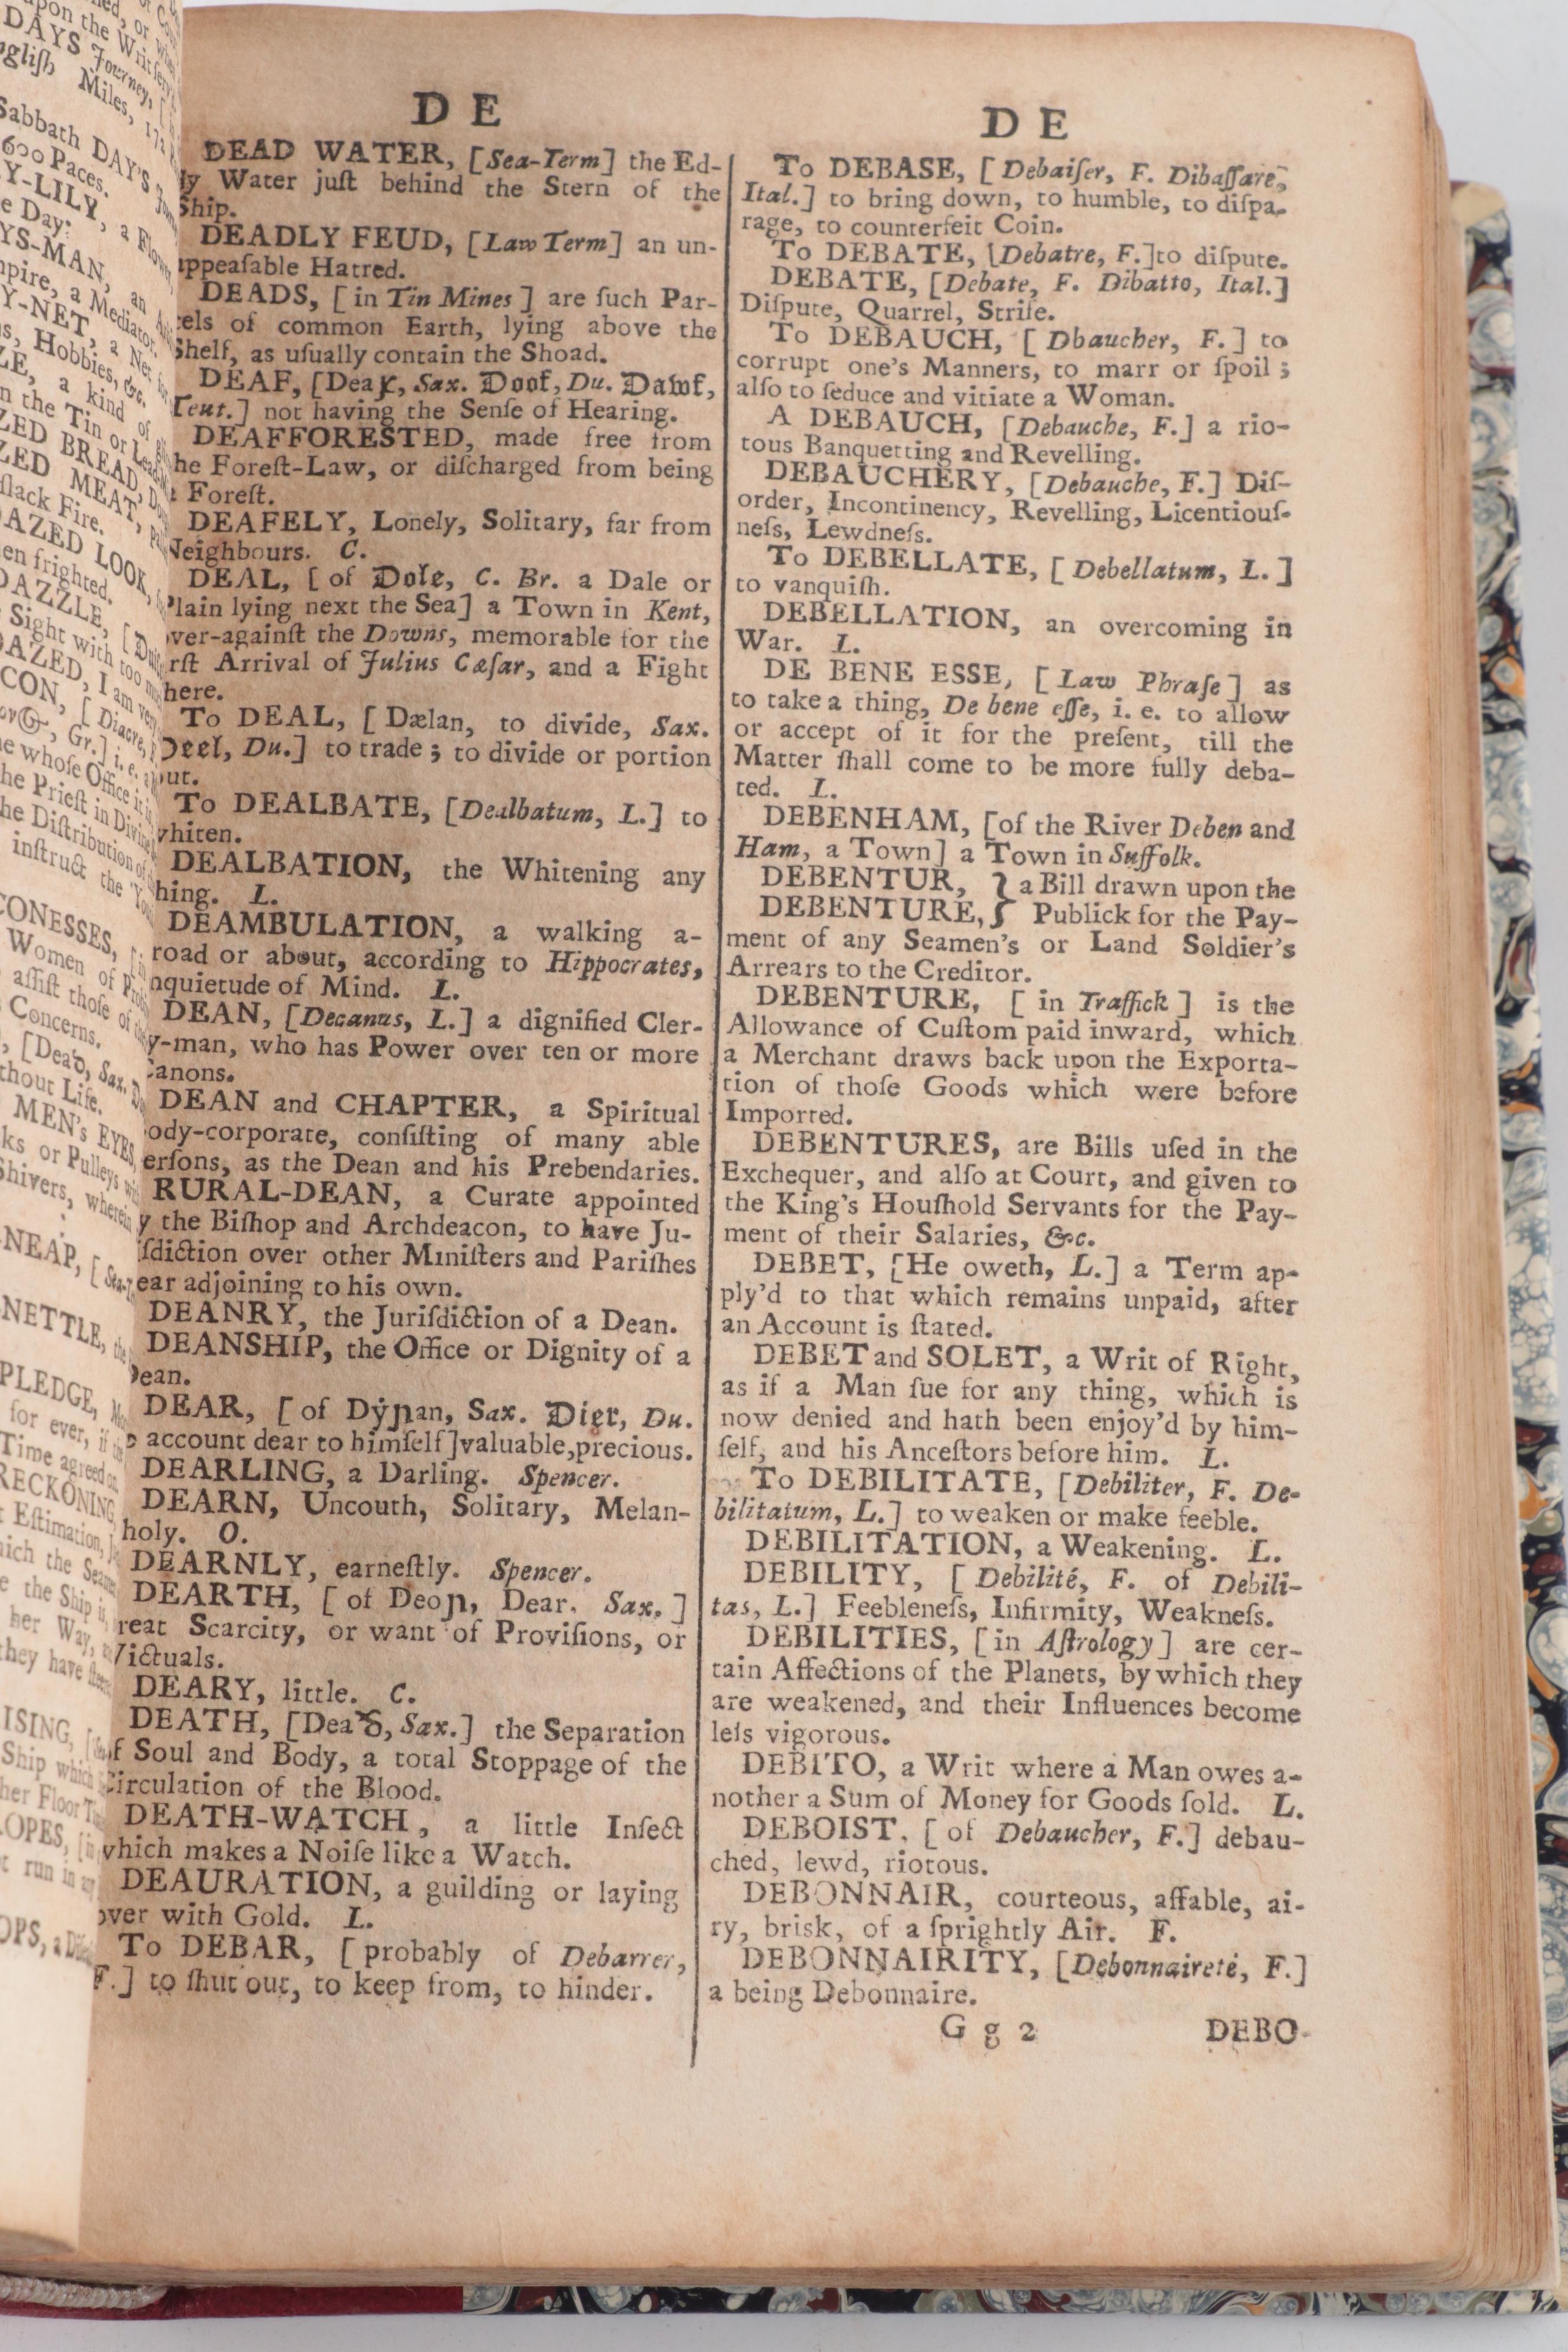 DE
DEAD WATER, [Sea-Term] the Ed-
dy Water juſt behind the Stern of the
Ship.
DEADLY FEUD, [Law Term] an un-
appeaſable Hatred.
DEADS, [in Tin Mines] are ſuch Par-
cels of common Earth, lying above the
Shelf, as uſually contain the Shoad.
DEAF, [Deaꝼ, Sax. Doof, Du. Dawf,
Teut.] not having the Senſe of Hearing.
DEAFFORESTED, made free from
the Foreſt-Law, or diſcharged from being
a Foreſt.
DEAFELY, Lonely, Solitary, far from
Neighbours. C.
DEAL, [of Dole, C. Br. a Dale or
Plain lying next the Sea] a Town in Kent,
over-againſt the Downs, memorable for the
firſt Arrival of Julius Cæſar, and a Fight
there.
To DEAL, [Dælan, to divide, Sax.
Deel, Du.] to trade; to divide or portion
out.
To DEALBATE, [Dealbatum, L.] to
whiten.
DEALBATION, the Whitening any
thing. L.
DEAMBULATION, a walking a-
broad or about, according to Hippocrates,
Inquietude of Mind. L.
DEAN, [Decanus, L.] a dignified Cler-
gy-man, who has Power over ten or more
Canons.
DEAN and CHAPTER, a Spiritual
Body-corporate, conſiſting of many able
Perſons, as the Dean and his Prebendaries.
RURAL-DEAN, a Curate appointed
by the Biſhop and Archdeacon, to have Ju-
riſdiction over other Miniſters and Pariſhes
near adjoining to his own.
DEANRY, the Juriſdiction of a Dean.
DEANSHIP, the Office or Dignity of a
Dean.
DEAR, [of Dẏꞃan, Sax. Dier, Du.
to account dear to himſelf]valuable,precious.
DEARLING, a Darling. Spencer.
DEARN, Uncouth, Solitary, Melan-
choly. O.
DEARNLY, earneſtly. Spencer.
DEARTH, [of Deoꞃ, Dear. Sax.]
great Scarcity, or want of Proviſions, or
Victuals.
DEARY, little. C.
DEATH, [Deað, Sax.] the Separation
of Soul and Body, a total Stoppage of the
Circulation of the Blood.
DEATH-WATCH, a little Inſect
which makes a Noiſe like a Watch.
DEAURATION, a guilding or laying
over with Gold. L.
To DEBAR, [probably of Debarrer,
F.] to ſhut out, to keep from, to hinder.
DE
To DEBASE, [Debaiſer, F. Dibaſſare,
Ital.] to bring down, to humble, to diſpa-
rage, to counterfeit Coin.
To DEBATE, [Debatre, F.]to diſpute.
DEBATE, [Debate, F. Dibatto, Ital.]
Diſpute, Quarrel, Strife.
To DEBAUCH, [Dbaucher, F.] to
corrupt one's Manners, to marr or ſpoil;
alſo to ſeduce and vitiate a Woman.
A DEBAUCH, [Debauche, F.] a rio-
tous Banquetting and Revelling.
DEBAUCHERY, [Debauche, F.] Diſ-
order, Incontinency, Revelling, Licentiouſ-
neſs, Lewdneſs.
To DEBELLATE, [Debellatum, L.]
to vanquiſh.
DEBELLATION, an overcoming in
War. L.
DE BENE ESSE, [Law Phraſe] as
to take a thing, De bene eſſe, i. e. to allow
or accept of it for the preſent, till the
Matter ſhall come to be more fully deba-
ted. L.
DEBENHAM, [of the River Deben and
Ham, a Town] a Town in Suffolk.
DEBENTUR, } a Bill drawn upon the
DEBENTURE,} Publick for the Pay-
ment of any Seamen's or Land Soldier's
Arrears to the Creditor.
DEBENTURE, [in Traffick] is the
Allowance of Cuſtom paid inward, which
a Merchant draws back upon the Exporta-
tion of thoſe Goods which were before
Imported.
DEBENTURES, are Bills uſed in the
Exchequer, and alſo at Court, and given to
the King's Houſhold Servants for the Pay-
ment of their Salaries, &c.
DEBET, [He oweth, L.] a Term ap-
ply'd to that which remains unpaid, after
an Account is ſtated.
DEBET and SOLET, a Writ of Right,
as if a Man ſue for any thing, which is
now denied and hath been enjoy'd by him-
ſelf, and his Anceſtors before him. L.
To DEBILITATE, [Debiliter, F. De-
bilitatum, L.] to weaken or make feeble.
DEBILITATION, a Weakening. L.
DEBILITY, [Debilité, F. of Debili-
tas, L.] Feebleneſs, Infirmity, Weakneſs.
DEBILITIES, [in Aſtrology] are cer-
tain Affections of the Planets, by which they
are weakened, and their Influences become
leſs vigorous.
DEBITO, a Writ where a Man owes a-
nother a Sum of Money for Goods ſold. L.
DEBOIST, [of Debaucher, F.] debau-
ched, lewd, riotous.
DEBONNAIR, courteous, affable, ai-
ry, brisk, of a ſprightly Air. F.
DEBONNAIRITY, [Debonnaireté, F.]
a being Debonnaire.
G g 2 DEBO-